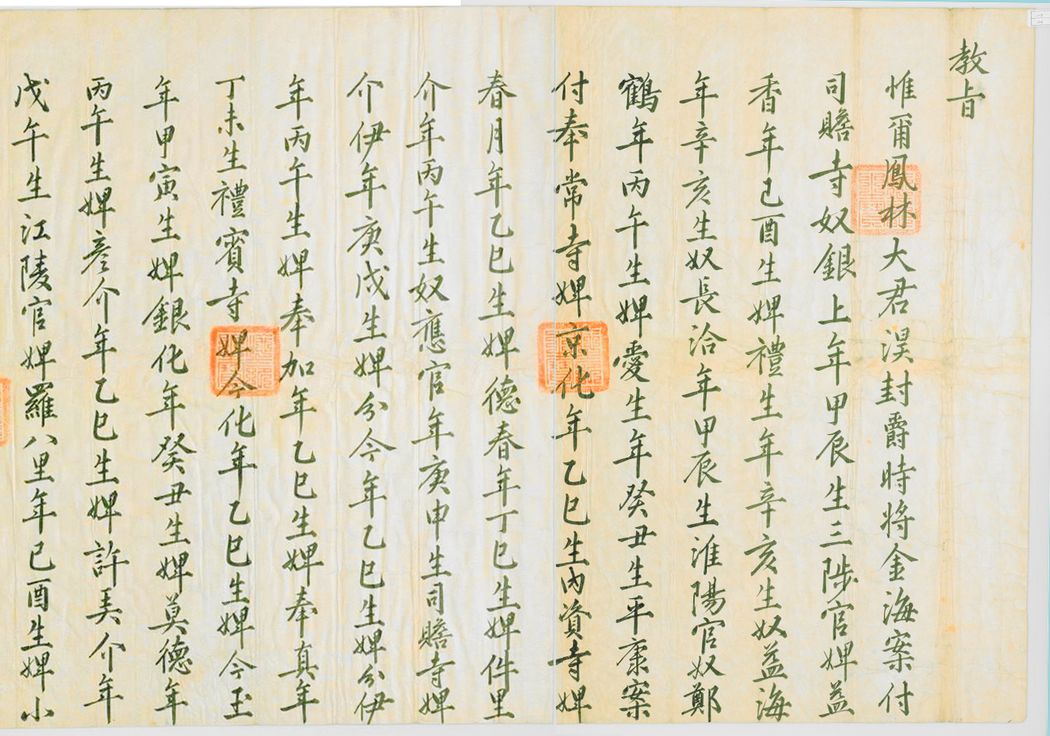 教旨
惟爾鳳林大君淏封爵時将金海案付
司贍寺奴銀上年甲辰生三陟官婢益
香年己酉生婢禮生年辛亥生奴益海
年辛亥生奴長洽年甲辰生淮陽官奴鄭
鶴年丙午生婢愛生年癸丑生平康案
付奉常寺婢京化年乙巳生內資寺婢
春月年乙巳生婢德春年丁巳生婢件里
介年丙午生奴應官年庚申生司贍寺婢
介伊年庚戌生婢分今年乙巳生婢分伊
年丙午生婢奉加年乙巳生婢奉真年
丁未生禮賓寺婢今化年乙巳生婢今玉
年甲寅生婢銀化年癸丑生婢莫德年
丙午生婢彦介年乙巳生婢許美介年
戊午生江陵官婢羅八里年己酉生婢小